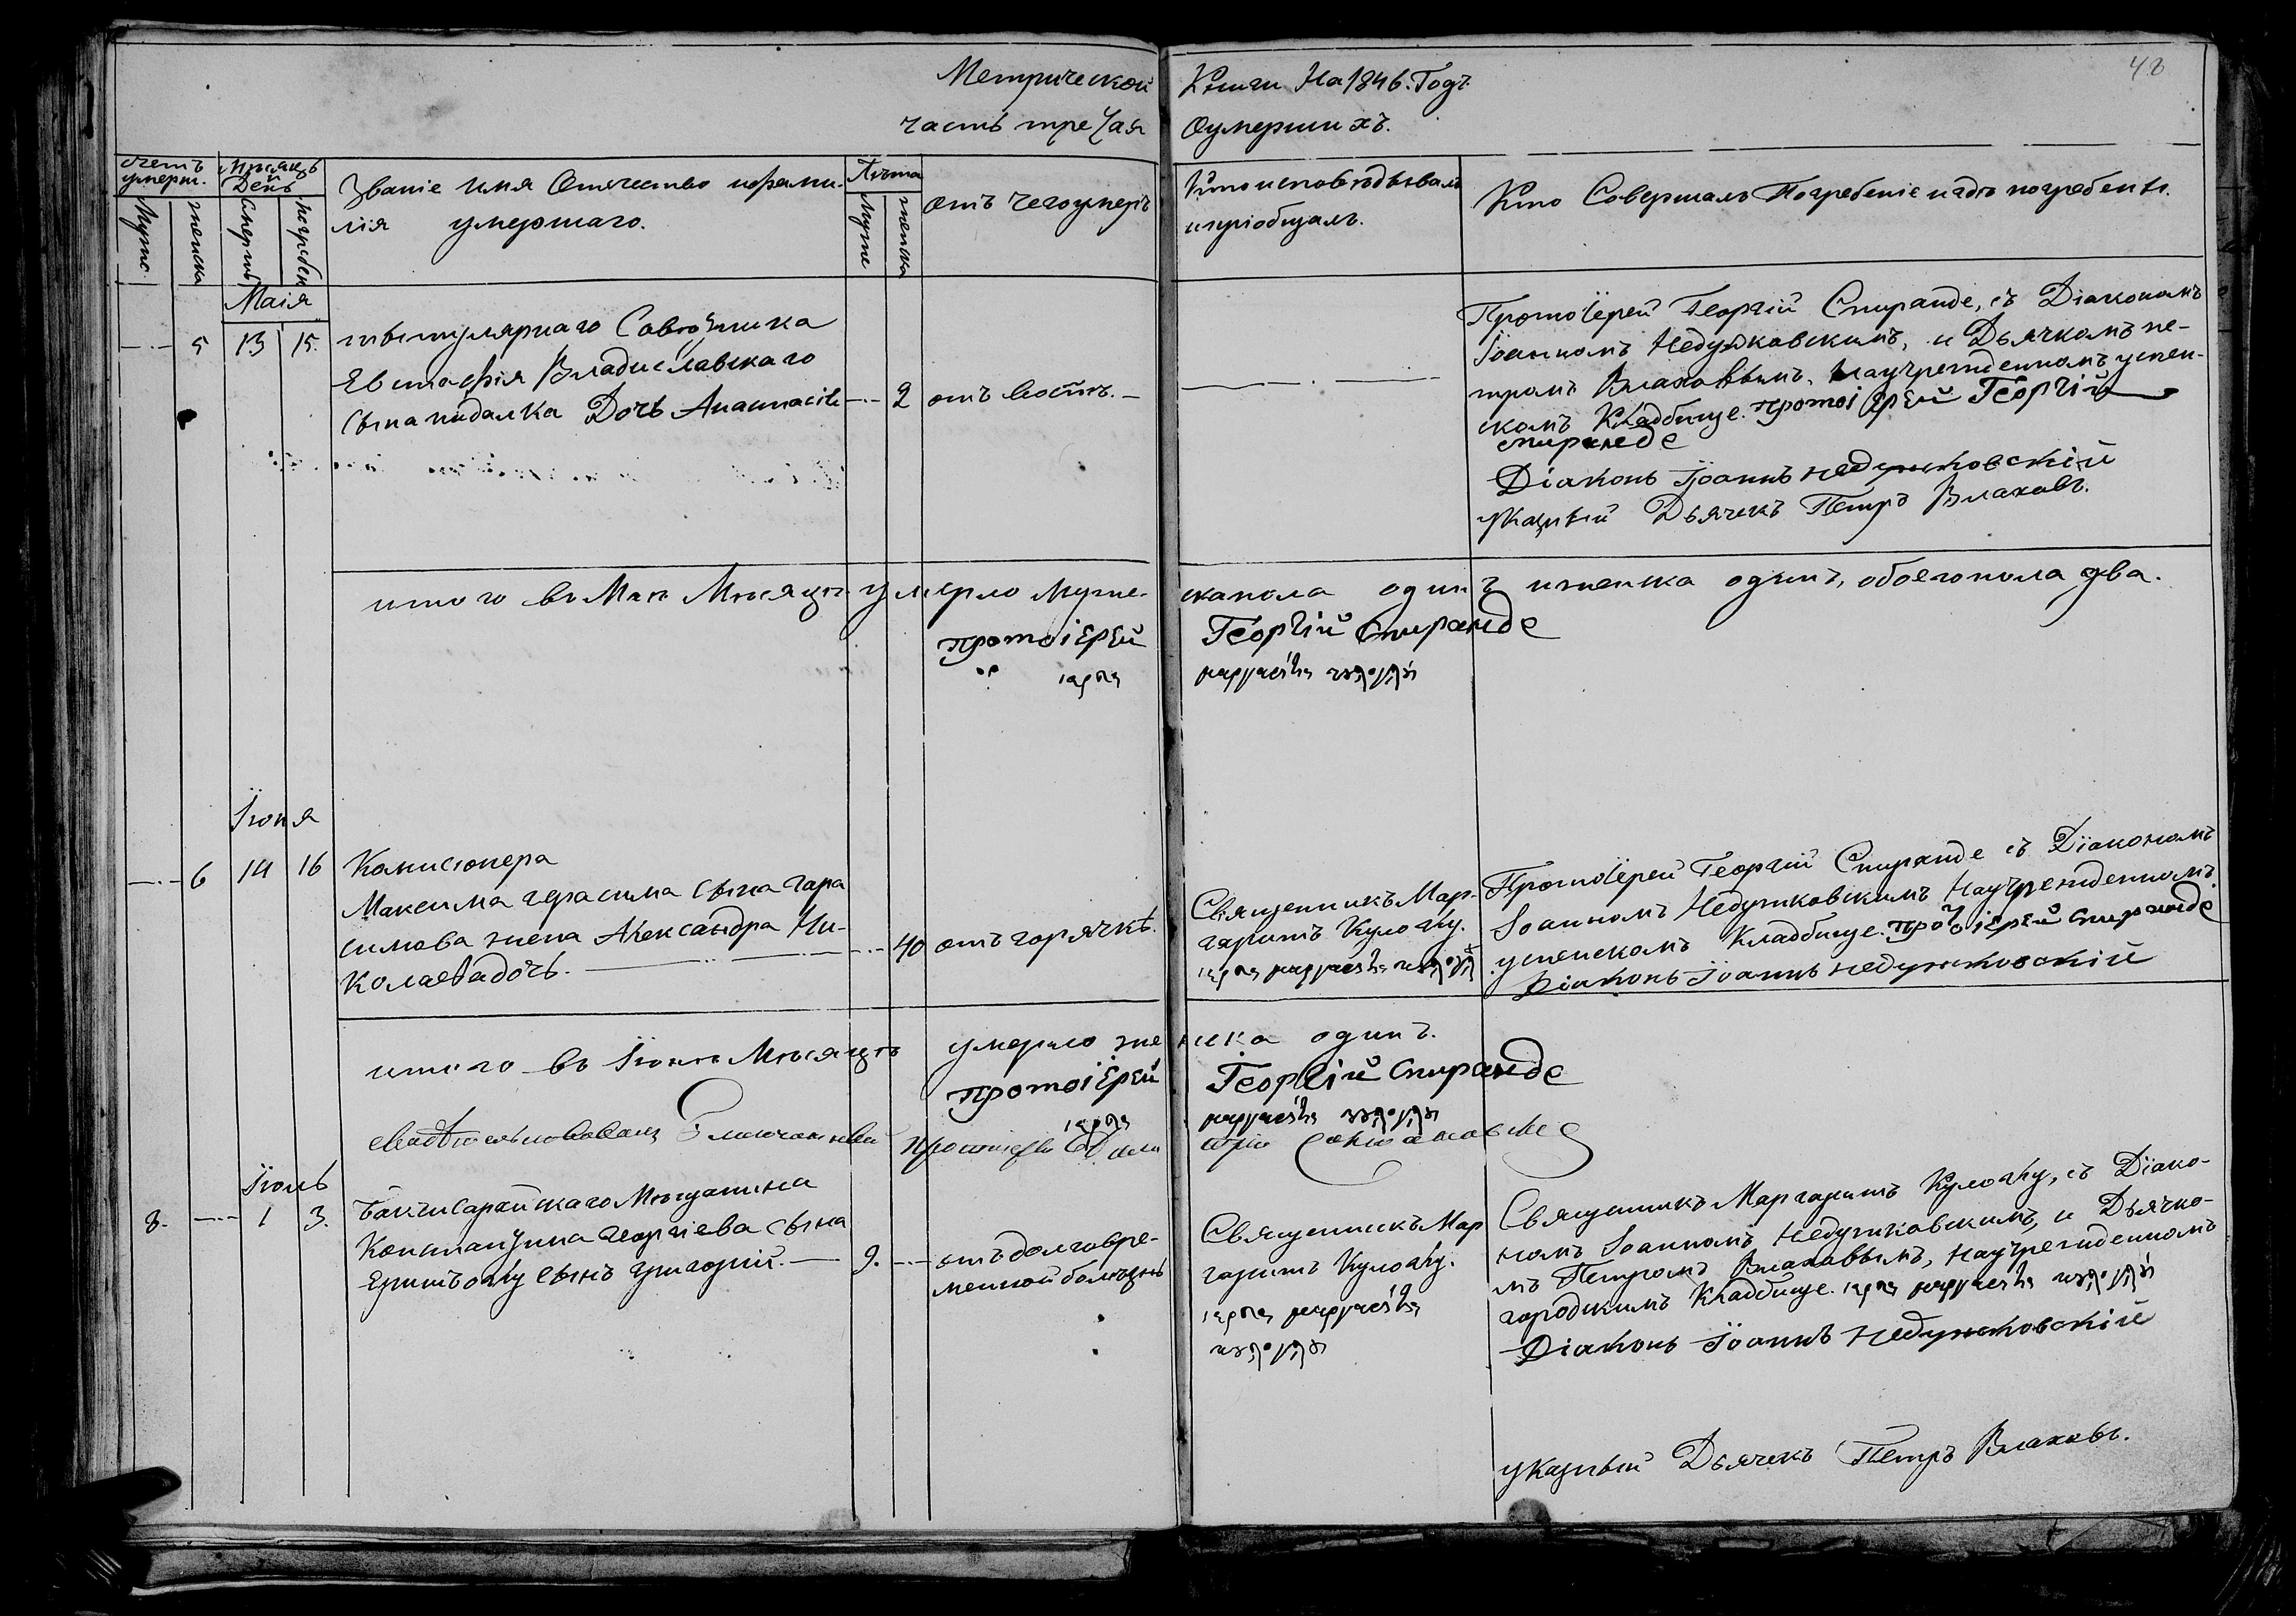 Метрической Книги На 1846. Годъ
часть третая Оумершихъ.
48
счетъ умерш.
Мѣсяцъ и День
Званіе Имя Отечество ифами-
лія умершаго.
Лѣта
отъ чегоумеръ
Ктоисповѣдывалъ
ипріобщалъ.
Кто Совершалъ Погребеніе игдѣ погребены.
Мужс
женска
Смерти
погребен
Муже
женска
Маія
— 5 13 15.
титулярнаго Совѣтника
Евстафія Владиславскаго
Сына Дочь Анастасія — 2
Протоіерей Георгій Спиранде, съ Діакономъ
Іоанномъ Недужковскимъ, и Дьячкомъ пе-
тромъ Влаховымъ, Научрежденномъ успен-
скомъ Кладбище. протоіерей Георгій
спиранде
Діаконъ Іоаннъ недужковскій
указный Дьячекъ Петръ Влаховъ.
итого въ Маѣ Мѣсяцѣ умерло Муже-
скапола одинъ иженска одинъ, обоегопола два.
протоіерей Георгій Спиранде
Іюня
— 6 14 16
Комисіонера
Максима герасима сына Гара
симова жена Александра Ни-
колаевадочь. — 40 отъ горячкѣ.
Священникъ Мар-
гаритъ Кулоглу.
Протоіерей Георгій Спиранде съ Діакономъ
Іоанномъ Недужковскимъ Научрежденномъ
успенскомъ Кладбище. протоіерей спиранде
Діаконъ Іоаннъ недужковскій
итого въ Іюнѣ Мѣсяцѣ умерло женска одинъ.
протоіерей Георгій Спиранде
Іюль
8. — 1 3.
Бахчисарайскаго Мѣщанина
Константина Георгіева сына
сынъ григорій. — 9. — отъ долговре-
менной болѣзнь
Священникъ Мар
гаритъ Кулоглу.
Священникъ Маргаритъ Кулоглу, съ Діако-
номъ Іоанномъ Недужковскимъ, и Дьячко-
мъ Петромъ Влаховымъ, Научрежденномъ
городскимъ Кладбище.
Діаконъ Іоаннъ недужковскій
указный Дьячекъ Петръ Влаховъ.